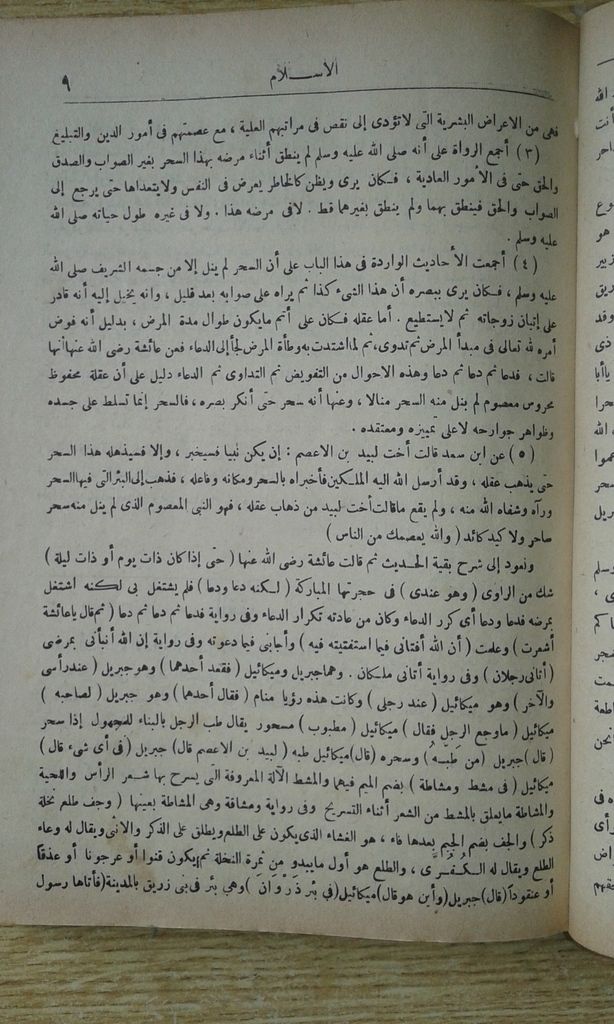 الاســلام
٩
فهى من الاعراض البشرية التى لاتؤدى إلى نقص فى مراتبهم العلية ، مع عصمتهم فى أمور الدين والتبليغ
(٣) أجمع الرواة على أنه صلى الله عليه وسلم لم ينطق أثناء مرضه بهذا السحر بغير الصواب والصدق
والحق حتى فى الأمور العادية ، فكان يرى ويظن كالخاطر يعرض فى النفس ولايتعداها حتى يرجع إلى
الصواب والحق فينطق بهما ولم ينطق بغيرهما قط . لافى مرضه هذا . ولا فى غيره طول حياته صلى الله
عليه وسلم .
(٤) أجمعت الأحاديث الواردة فى هذا الباب على أن السحر لم ينل إلا من جسمه الشريف صلى الله
عليه وسلم ، فكان يرى ببصره أن هذا الشىء كذا ثم يراه على صوابه بعد قليل ، وانه يخيل إليه أنه قادر
على إتيان زوجاته ثم لايستطيع . أما عقله فكان على أتم مايكون طوال مدة المرض ، بدليل أنه فوض
أمره لله تعالى فى مبدأ المرض ثم تدوى ، ثم لما اشتدت به وطأة المرض لجأ إلى الدعاء فعن عائشة رضى الله عنها انها
قالت ، فدعا ثم دعا ثم دعا وهذه الاحوال من التفويض ثم التداوى ثم الدعاء دليل على أن عقلة محفوظ
محروس معصوم لم ينل منه السحر منالا ، وعنها أنه سحر حتى أنكر بصره ، فالسحر إنما تسلط على جسده
وظواهر جوارحه لاعلى تمييزه ومعتقده .
(٥) عن ابن سعد قالت أخت لبيد بن الاعصم : إن يكن نبيا فسيخبر ، وإلا فسيذهله هذا السحر
حتى يذهب عقله ، وقد أرسل الله اليه الملكين فأخبراه بالسحر ومكانه وفاعله ، فذهب إلى البئر التى فيها السحر
ورآه وشفاه الله منه ، ولم يقع ماقالت أخت لبيد من ذهاب عقله ، فهو النبى المعصوم الذى لم ينل منه سحر
ساحر ولا كيد كائد ( والله يعصمك من الناس )
ونعود إلى شرح بقية الحديث ثم قالت عائشة رضى الله عنها ( حتى إذا كان ذات يوم أو ذات ليلة )
شك من الراوى ( وهو عندى ) فى حجرتها المباركة ( لكنه دعا ودعا ) فلم يشتغل بى لكنه اشتغل
بمرضه فدعا ودعا أى كرر الدعاء وكان من عادته تكرار الدعاء وفى رواية فدعا ثم دعا ثم دعا ( ثم قال ياعائشة
أشعرت ) وعلمت ( أن الله أفتانى فيما استفتيته فيه ) وأجابنى فيما دعوته وفى رواية إن الله أنبأنى بمرضى
( أتانى رجلان ) وفى رواية أتانى ملكان . وهما جبريل وميكائيل ( فقعد أحدهما ) وهو جبريل ( عند رأسى
والآخر ) وهو ميكائيل ( عند رجلى ) وكانت هذه رؤيا منام ( فقال أحدهما ) وهو جبريل ( لصاحبه )
ميكائيل ( ماوجع الرجل فقال ) ميكائيل ( مطبوب ) مسحور يقال طب الرجل بالبناء للمجهول إذا سحر
( قال ) جبريل ( من طَبَّـهُ ) وسحره ( قال ) ميكائيل طبه ( لبيد بن الاعصم قال ) جبريل ( فى أى شىء قال )
ميكائيل ( فى مشط ومشاطة ) بضم الميم فيهما والمشط الآلة المعروفة التى يسرح بها شعر الرأس واللحية
والمشاطة مايعلق بالمشط من الشعر أثناء التسريح وفى رواية ومشاقة وهى المشاطة بعينها ( وجف طلع نخلة
ذكر ) والجف بضم الجيم بعدها فاء ، هو الغشاء الذى يكون على الطلع ويطلق على الذكر والانثى ويقال له وعاء
الطلع ويقال له الكُفُرَّى ، والطلع هو أول مايبدو من ثمرة النخلة ثم يكون قنوا أو عرجونا أو عذقا
أو عنقوداً ( قال ) جبريل ( وأين هو قال ) ميكائيل ( في بئر ذَرْوَانَ ) وهي بئر فى بنى زريق بالمدينة ( فأتاها رسول